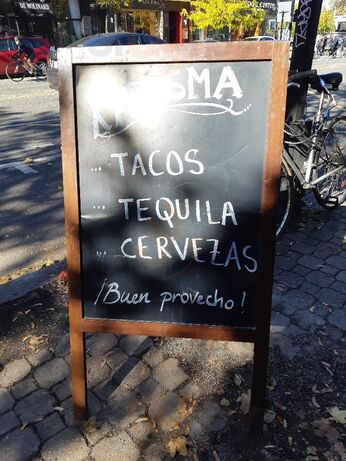 DE MOLINARD
... TACOS
... TEQUILA
... CERVEZAS
¡Buen provecho!